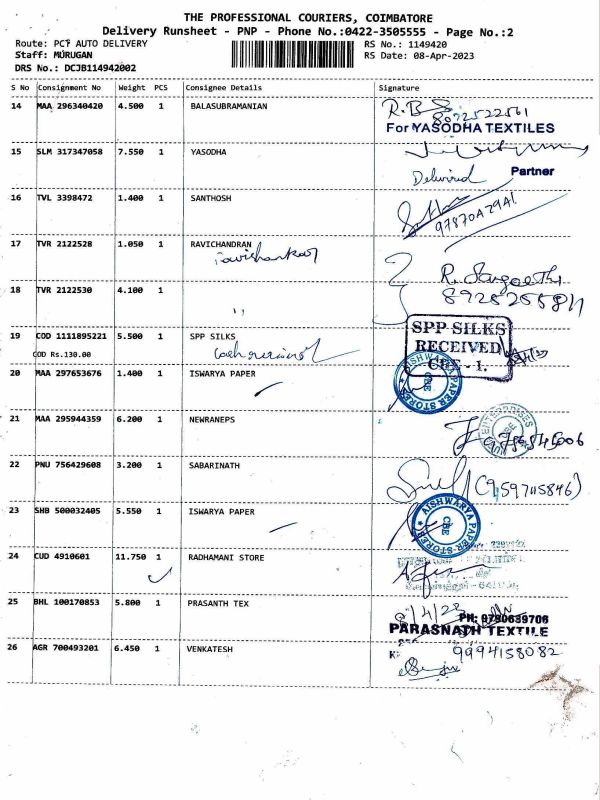 THE PROFESSIONAL COURIERS, COIMBATORE
Delivery Runsheet - PNP - Phone No.:0422-3505555 - Page No.:2
Route: PCT AUTO DELIVERY
RS No.: 1149420
Staff: MURUGAN
RS Date: 08-Apr-2023
DRS No.: DCJB114942002
S No Consignment No Weight PCS Consignee Details Signature
14 MAA 296340420 4.500 1 BALASUBRAMANIAN R.B
8072522561
For YASODHA TEXTILES
15 SLM 317347058 7.550 1 YASODHA
Delivered Partner
16 TVL 3398472 1.400 1 SANTHOSH
17 TVR 2122528 1.050 1 RAVICHANDRAN
Ravishankar
18 TVR 2122530 4.100 1 "
19 COD 1111895221 5.500 1 SPP SILKS
COD Rs.130.00
SPP SILKS
RECEIVED
CBE - 1.
20 MAA 297653676 1.400 1 ISWARYA PAPER
AISHWARYA PAPER STORES
CBE
21 MAA 295944359 6.200 1 NEWRANEPS
ENTERPRISES
22 PNU 756429608 3.200 1 SABARINATH
23 SHB 500032405 5.550 1 ISWARYA PAPER
AISHWARYA PAPER STORES
CBE
24 CUD 4910601 11.750 1 RADHAMANI STORE
25 BHL 100170853 5.800 1 PRASANTH TEX
8/4/23
PH: 9790639706
PARASNATH TEXTILE
26 AGR 700493201 6.450 1 VENKATESH
9994158082